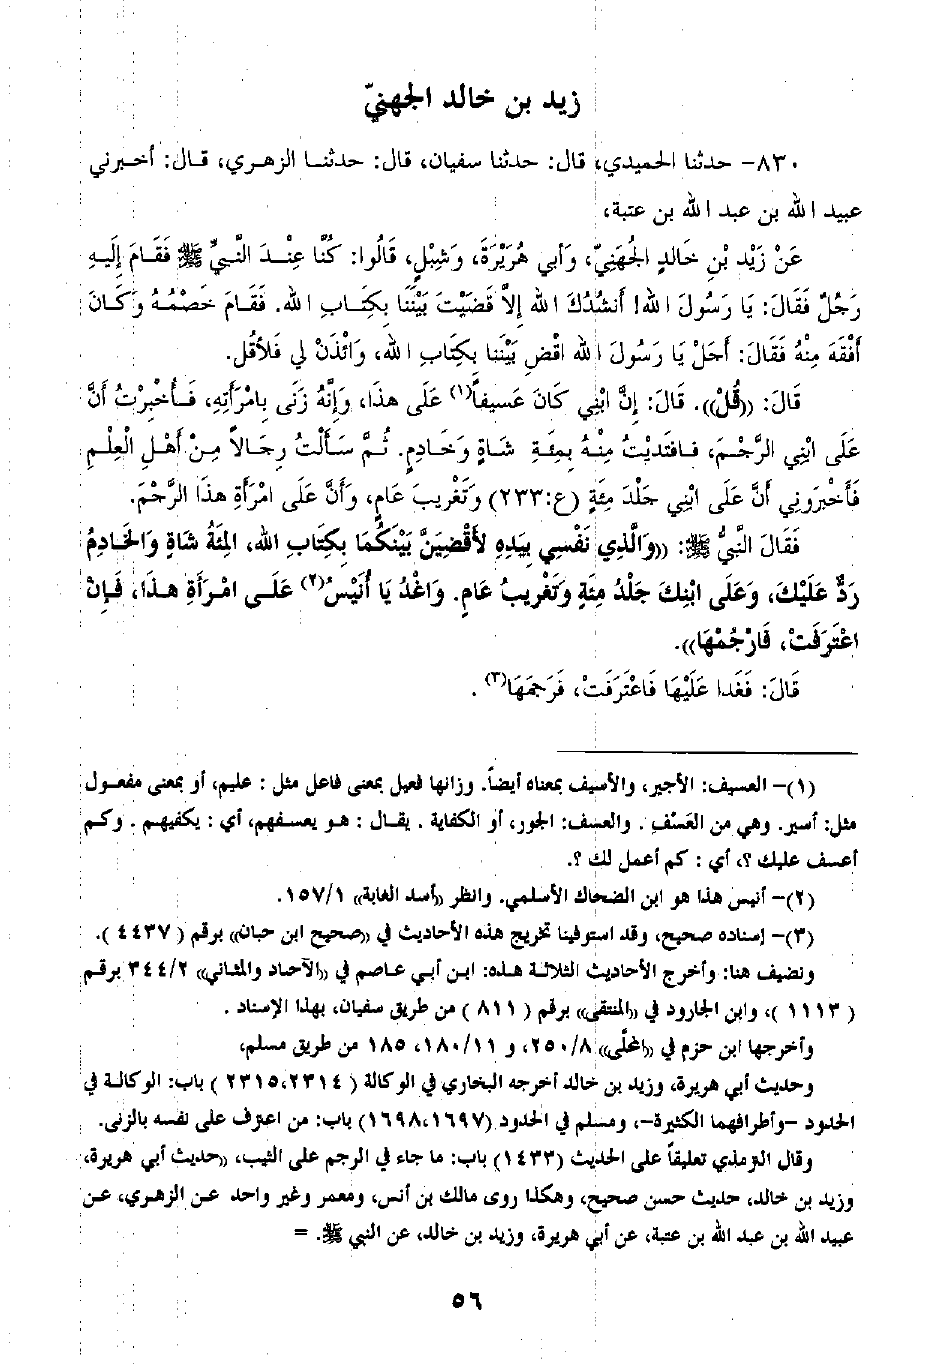 زيد بن خالد الجهنيّ
٨٣٠- حدثنا الحميدي، قال: حدثنا سفيان، قال: حدثنا الزهري، قال: أخبرني
عبيد الله بن عبد الله بن عتبة،
عَنْ زَيْدِ بْنِ خَالدٍ الجُهَنِيِّ، وَأَبي هُرَيْرَةَ، وَشِبْلٍ، قَالُوا: كُنَّا عِنْدَ النَّبِيِّ ﷺ فَقَامَ إِلَيهِ
رَجُلٌ فَقَالَ: يَا رَسُولَ الله! أَنشُدُكَ الله إِلاَّ قَضَيْتَ بَيْنَنَا بِكِتَابِ الله. فَقَامَ خَصْمُهُ وَكَانَ
أَفْقَهَ مِنْهُ فَقَالَ: أَجَلْ يَا رَسُولَ الله اقْضِ بَيْنَنا بِكِتَابِ الله، وَائْذَنْ لي فَلأَقُل.
قَالَ: ((قُلْ)). قَالَ: إِنَّ ابْنِي كَانَ عَسِيفاً(١) عَلَى هذَا، وَإِنَّهُ زَنَى بِامْرَأَتِهِ، فَأُخْبِرْتُ أَنَّ
عَلَى ابْنِي الرَّجْمَ، فَافتَدَيْتُ مِنْهُ بِمِئَةِ شَاةٍ وَخَادِمٍ. ثُمَّ سَأَلْتُ رِجَالاً مِنْ أَهْلِ الْعِلْمِ
فَأَخْبَرُونِي أَنَّ عَلَى ابْنِي جَلْدَ مِئَةٍ (ع:٢٣٣) وَتَغْرِيبَ عَامٍ، وَأَنَّ عَلَى امْرَأَةِ هذَا الرَّجْمَ.
فَقَالَ النَّبِيُّ ﷺ: ((وَالَّذِي نَفْسِي بِيَدِهِ لأَقْضِيَنَّ بَيْنَكُمَا بِكِتَابِ الله، المِئَةُ شَاةٍ وَالخَادِمُ
رَدٌّ عَلَيْكَ، وَعَلَى ابْنِكَ جَلْدُ مِئَةٍ وَتَغْرِيبُ عَامٍ. وَاغْدُ يَا أُنَيْسُ(٢) عَلَى امْرَأَةِ هذَا، فَإِنْ
اعْتَرَفَتْ، فَارْجُمْهَا)).
قَالَ: فَغَدا عَلَيْهَا فَاعْتَرَفَتْ، فَرَجَمَهَا(٣) .
(١)- العسيف: الأجير، والأسيف بمعناه أيضاً. وزانها فعيل بمعنى فاعل مثل : عليم، أو بمعنى مفعول
مثل: أسير. وهي من العَسْفِ . والعسف: الجور، أو الكفاية . يقال : هو يعسفهم، أي : يكفيهم . وكم
أعسف عليك ؟، أي : كم أعمل لك ؟.
(٢)- أنيس هذا هو ابن الضحاك الأسلمي. وانظر ((أسد الغابة)) ١٥٧/١.
(٣)- إسناده صحيح، وقد استوفينا تخريج هذه الأحاديث في ((صحيح ابن حبان)) برقم ( ٤٤٣٧ ).
ونضيف هنا: وأخرج الأحاديث الثلاثة هذه: ابن أبي عاصم في ((الآحاد والمثاني)) ٣٤٤/٢ برقم
( ١١١٣ )، وابن الجارود في ((المنتقى)) برقم ( ٨١١ ) من طريق سفيان، بهذا الإسناد .
وأخرجها ابن حزم في ((المحلّى)) ٢٥٠/٨، و ١٨٠/١١، ١٨٥ من طريق مسلم،
وحديث أبي هريرة، وزيد بن خالد أخرجه البخاري في الوكالة ( ٢٣١٤،٢٣١٥ ) باب: الوكالة في
الحدود -وأطرافهما الكثيرة-، ومسلم في الحدود (١٦٩٧،١٦٩٨) باب: من اعترف على نفسه بالزنى.
وقال الترمذي تعليقاً على الحديث (١٤٣٣) باب: ما جاء في الرجم على الثيب، ((حديث أبي هريرة،
وزيد بن خالد، حديث حسن صحيح، وهكذا روى مالك بن أنس، ومعمر وغير واحد عن الزهري، عن
عبيد الله بن عبد الله بن عتبة، عن أبي هريرة، وزيد بن خالد، عن النبي ﷺ. =
٥٦